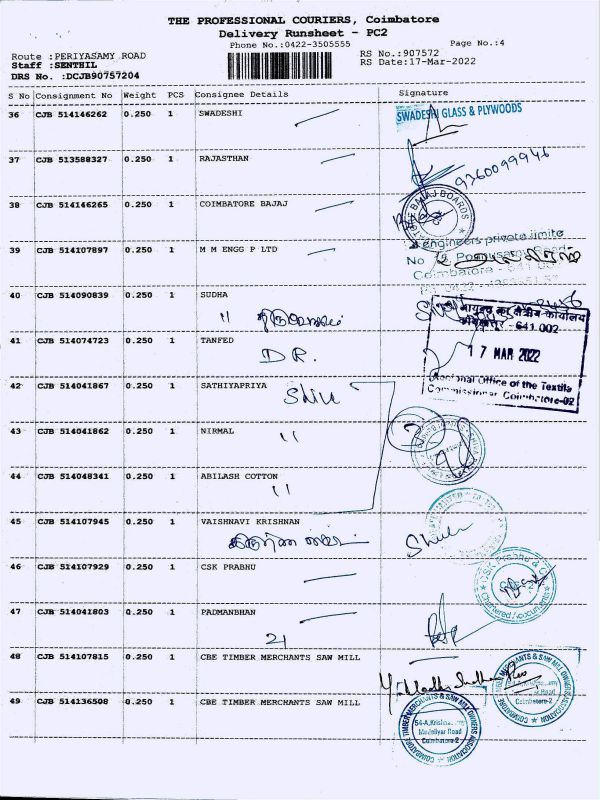 THE PROFESSIONAL COURIERS, Coimbatore
Delivery Runsheet - PC2
Phone No.:0422-3505555
Page No.:4
Route :PERIYASAMY ROAD
Staff :SENTHIL
DRS No. :DCJB90757204
RS No.:907572
RS Date:17-Mar-2022
S No Consignment No Weight PCS Consignee Details Signature
36 CJB 514146262 0.250 1 SWADESHI
SWADESHI GLASS & PLYWOODS
37 CJB 513588327 0.250 1 RAJASTHAN
9360099946
38 CJB 514146265 0.250 1 COIMBATORE BAJAJ
BAJAJ BOARDS
39 CJB 514107897 0.250 1 M M ENGG P LTD
engineers private limite
No
Coimbatore - 641
40 CJB 514090839 0.250 1 SUDHA
"
आयुक्त का क्षेत्रीय कार्यालय
641 002
41 CJB 514074723 0.250 1 TANFED
DR.
17 MAR 2022
Regional Office of the Textile
Commissioner Coimbatore-02
42 CJB 514041867 0.250 1 SATHIYAPRIYA
Shiu
43 CJB 514041862 0.250 1 NIRMAL
"
44 CJB 514048341 0.250 1 ABILASH COTTON
"
45 CJB 514107945 0.250 1 VAISHNAVI KRISHNAN
46 CJB 514107929 0.250 1 CSK PRABHU
CSK Prabhu & Co
Chartered Accountants
47 CJB 514041803 0.250 1 PADMANBHAN
21
48 CJB 514107815 0.250 1 CBE TIMBER MERCHANTS SAW MILL
TIMBER MERCHANTS & SAW MILL OWNERS ASSOCIATION
COIMBATORE
Road
Coimbatore-2
49 CJB 514136508 0.250 1 CBE TIMBER MERCHANTS SAW MILL
COIMBATORE TIMBER MERCHANTS & SAW MILL OWNERS ASSOCIATION
54-A,Krishnasamy
Mudaliyar Road
Coimbatore-2